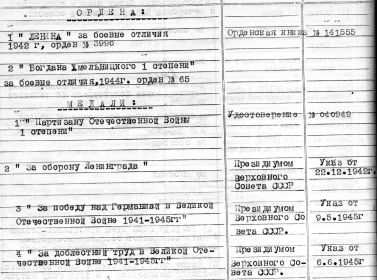 ОРДЕНА:
1 " ЛЕНИНА" за боевые отличия
Орденская книжка № 141555
1942 г, орден № 3996
2 " Богдана Хмельницкого 1 степени"
за боевые отличия,1944г. орден № 65
МЕДАЛИ:
1" Партизану Отечественной Войны
Удостоверение № 040949
1 степени"
2 " За оборону Ленинграда "
Президиумом Указ от
Верховного 22.12.1942г.
Совета СССР
3 " За победу над Германией в Великой
Президиумом Указ от
Отечественной Войне 1941-1945гг"
Верховного Со 9.5.1945г
вета СССР.
4 " За доблестный труд в Великой Оте-
Президиумом Указ от
чественной Войне 1941-1945гг"
Верховного Со- 6.6.1945г
вета СССР.